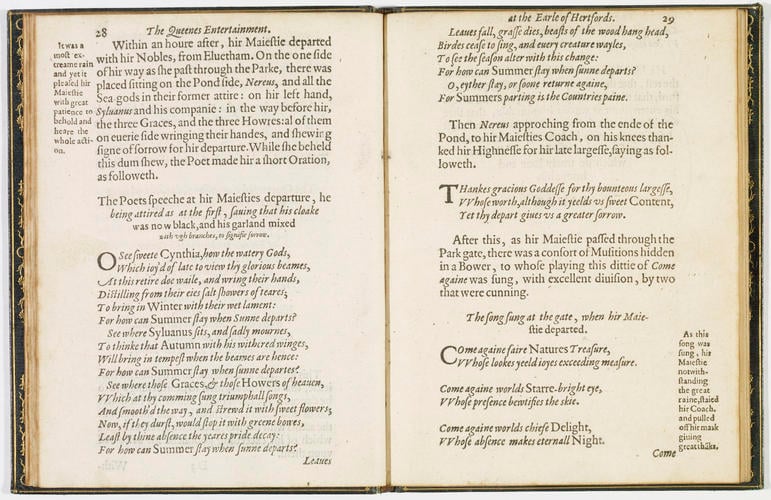 28 The Queenes Entertainment.
It was a
most ex-
treame rain
and yet it
pleased hir
Maiestie
with great
patience to
behold and
heare the
whole acti-
on.
Within an houre after, hir Maiestie departed
with her Nobles, from Eluetham. On the one side
of hir way as she past through the Parke, there was
placed sitting on the Pond side, Nereus, and all the
Sea-gods in their former attire: on hir left hand,
Syluanus and his companie: in the way before hir,
the three Graces, and the three Howres: al of them
on euerie side wringing their handes, and shewing
signe of sorrow for hir departure. While she beheld
this dum shew, the Poet made hir a short Oration,
as followeth.
The Poets speeche at hir Maiesties departure, he
being attired as at the first, sauing that his cloake
was now black, and his garland mixed
with vgh branches, to signifie sorrow.
O See sweete Cynthia, how the watery Gods,
Which ioy'd of late to view thy glorious beames,
At this retire doe waile, and wring their hands,
Distilling from their eies salt showers of teares;
To bring in Winter with their wet lament:
For how can Summer stay when Sunne departs?
See where Syluanus sits, and sadly mournes,
To thinke that Autumn with his withered wings,
Will bring in tempest when the beames are hence:
For how can Summer stay when sunne departes?
See where those Graces, & those Howers of heauen,
VVhich at thy comming sung triumphall songs,
And smooth'd the way, and strewd it with sweet flowers;
Now, if they durst, would stop it with greene bowes,
Least by thine absence the yeares pride decay:
For how can Summer stay when sunne departs?
Leaues
at the Earle of Hertfords. 29
Leaues fall, grasse dies, beasts of the wood hang head,
Birdes cease to sing, and euery creature wayles,
To see the season alter with this change:
For how can Summer stay when sunne departs?
O, eyther stay, or soone returne againe,
For Summers parting is the Countries paine.
Then Nereus approching from the ende of the
Pond, to hir Maiesties Coach, on his knees than-
ked hir Highnesse for hir late largesse, saying as fol-
loweth.
THankes gracious Goddesse for thy bounteous largesse,
VVhose worth, although it yeelds vs sweet Content,
Yet thy depart giues vs a greater sorrow.
After this, as hir Maiestie passed through the
Park gate, there was a consort of Musitions hidden
in a Bower, to whose playing this dittie of Come
againe was sung, with excellent diuision, by two
that were cunning.
The song sung at the gate, when hir Maie-
stie departed.
COme againe faire Natures Treasure,
VVhose lookes yeeld ioyes exceeding measure.
Come againe worlds Starre-bright eye,
VVhose presence bewtifies the skie.
Come againe worlds chiefe Delight,
VVhose absence makes eternall Night.
As this
song was
sung, hir
Maiestie
notwith-
standing
the great
raine, staied
hir Coach,
and pulled
off hir mask
giuing
great thãks.
Come